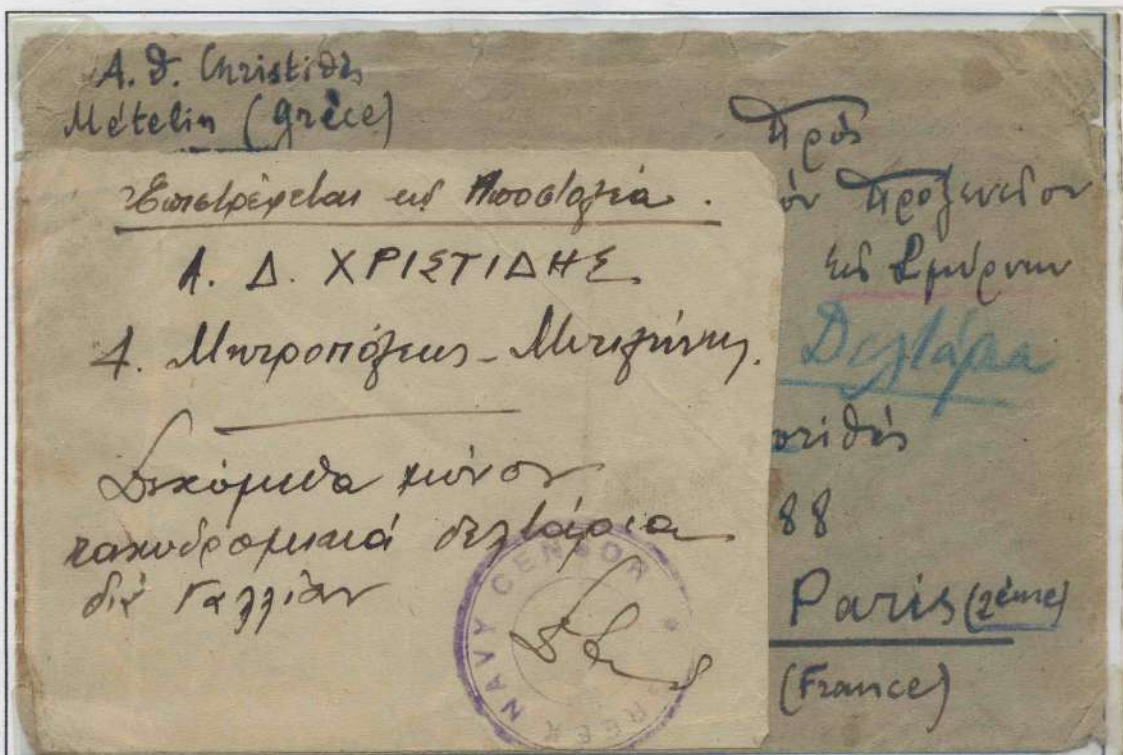 A. D. Christidès
Mételin (Grèce)
Ἐπιστρέφεται εἰς Ἀποστολέα.
Α. Δ. ΧΡΙΣΤΙΔΗΣ
4. Μητροπόλεως - Μυτιλήνης.
Δεχόμεθα μόνον
ταχυδρομικά δελτάρια
διὰ Γαλλίαν
GREEK NAVY CENSOR
Πρός
όν Προξενείον
εἰς Σμύρνην
Δελτάρια
88
Paris (2ème)
(France)